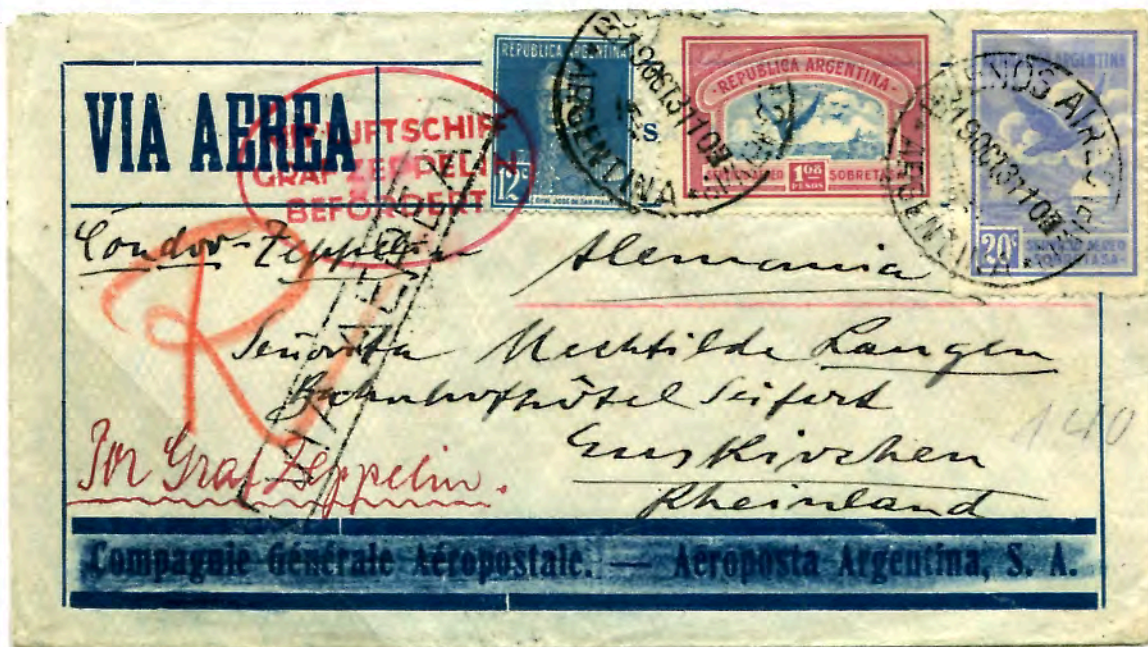 VIA AEREA
MIT LUFTSCHIFF
GRAF ZEPPELIN
BEFÖRDERT
REPUBLICA ARGENTINA
12c
GRAL JOSE DE SAN MARTIN
S.
BUENOS AIRES
19OCT31 10
ARGENTINA
REPUBLICA ARGENTINA
SERVICIO AEREO 1.08 PESOS SOBRETASA
BUENOS AIRES
19OCT31 10
ARGENTINA
REPUBLICA ARGENTINA
20c SERVICIO AEREO
-SOBRETASA-
Cóndor-Zeppelin
Alemania
R
VIA AEREA
Señorita Mechtilde Langen
Bahnhofhôtel Seifert
Euskirchen
Rheinland
140
Por Graf Zeppelin.
Compagnie Générale Aéropostale. — Aeroposta Argentina, S. A.